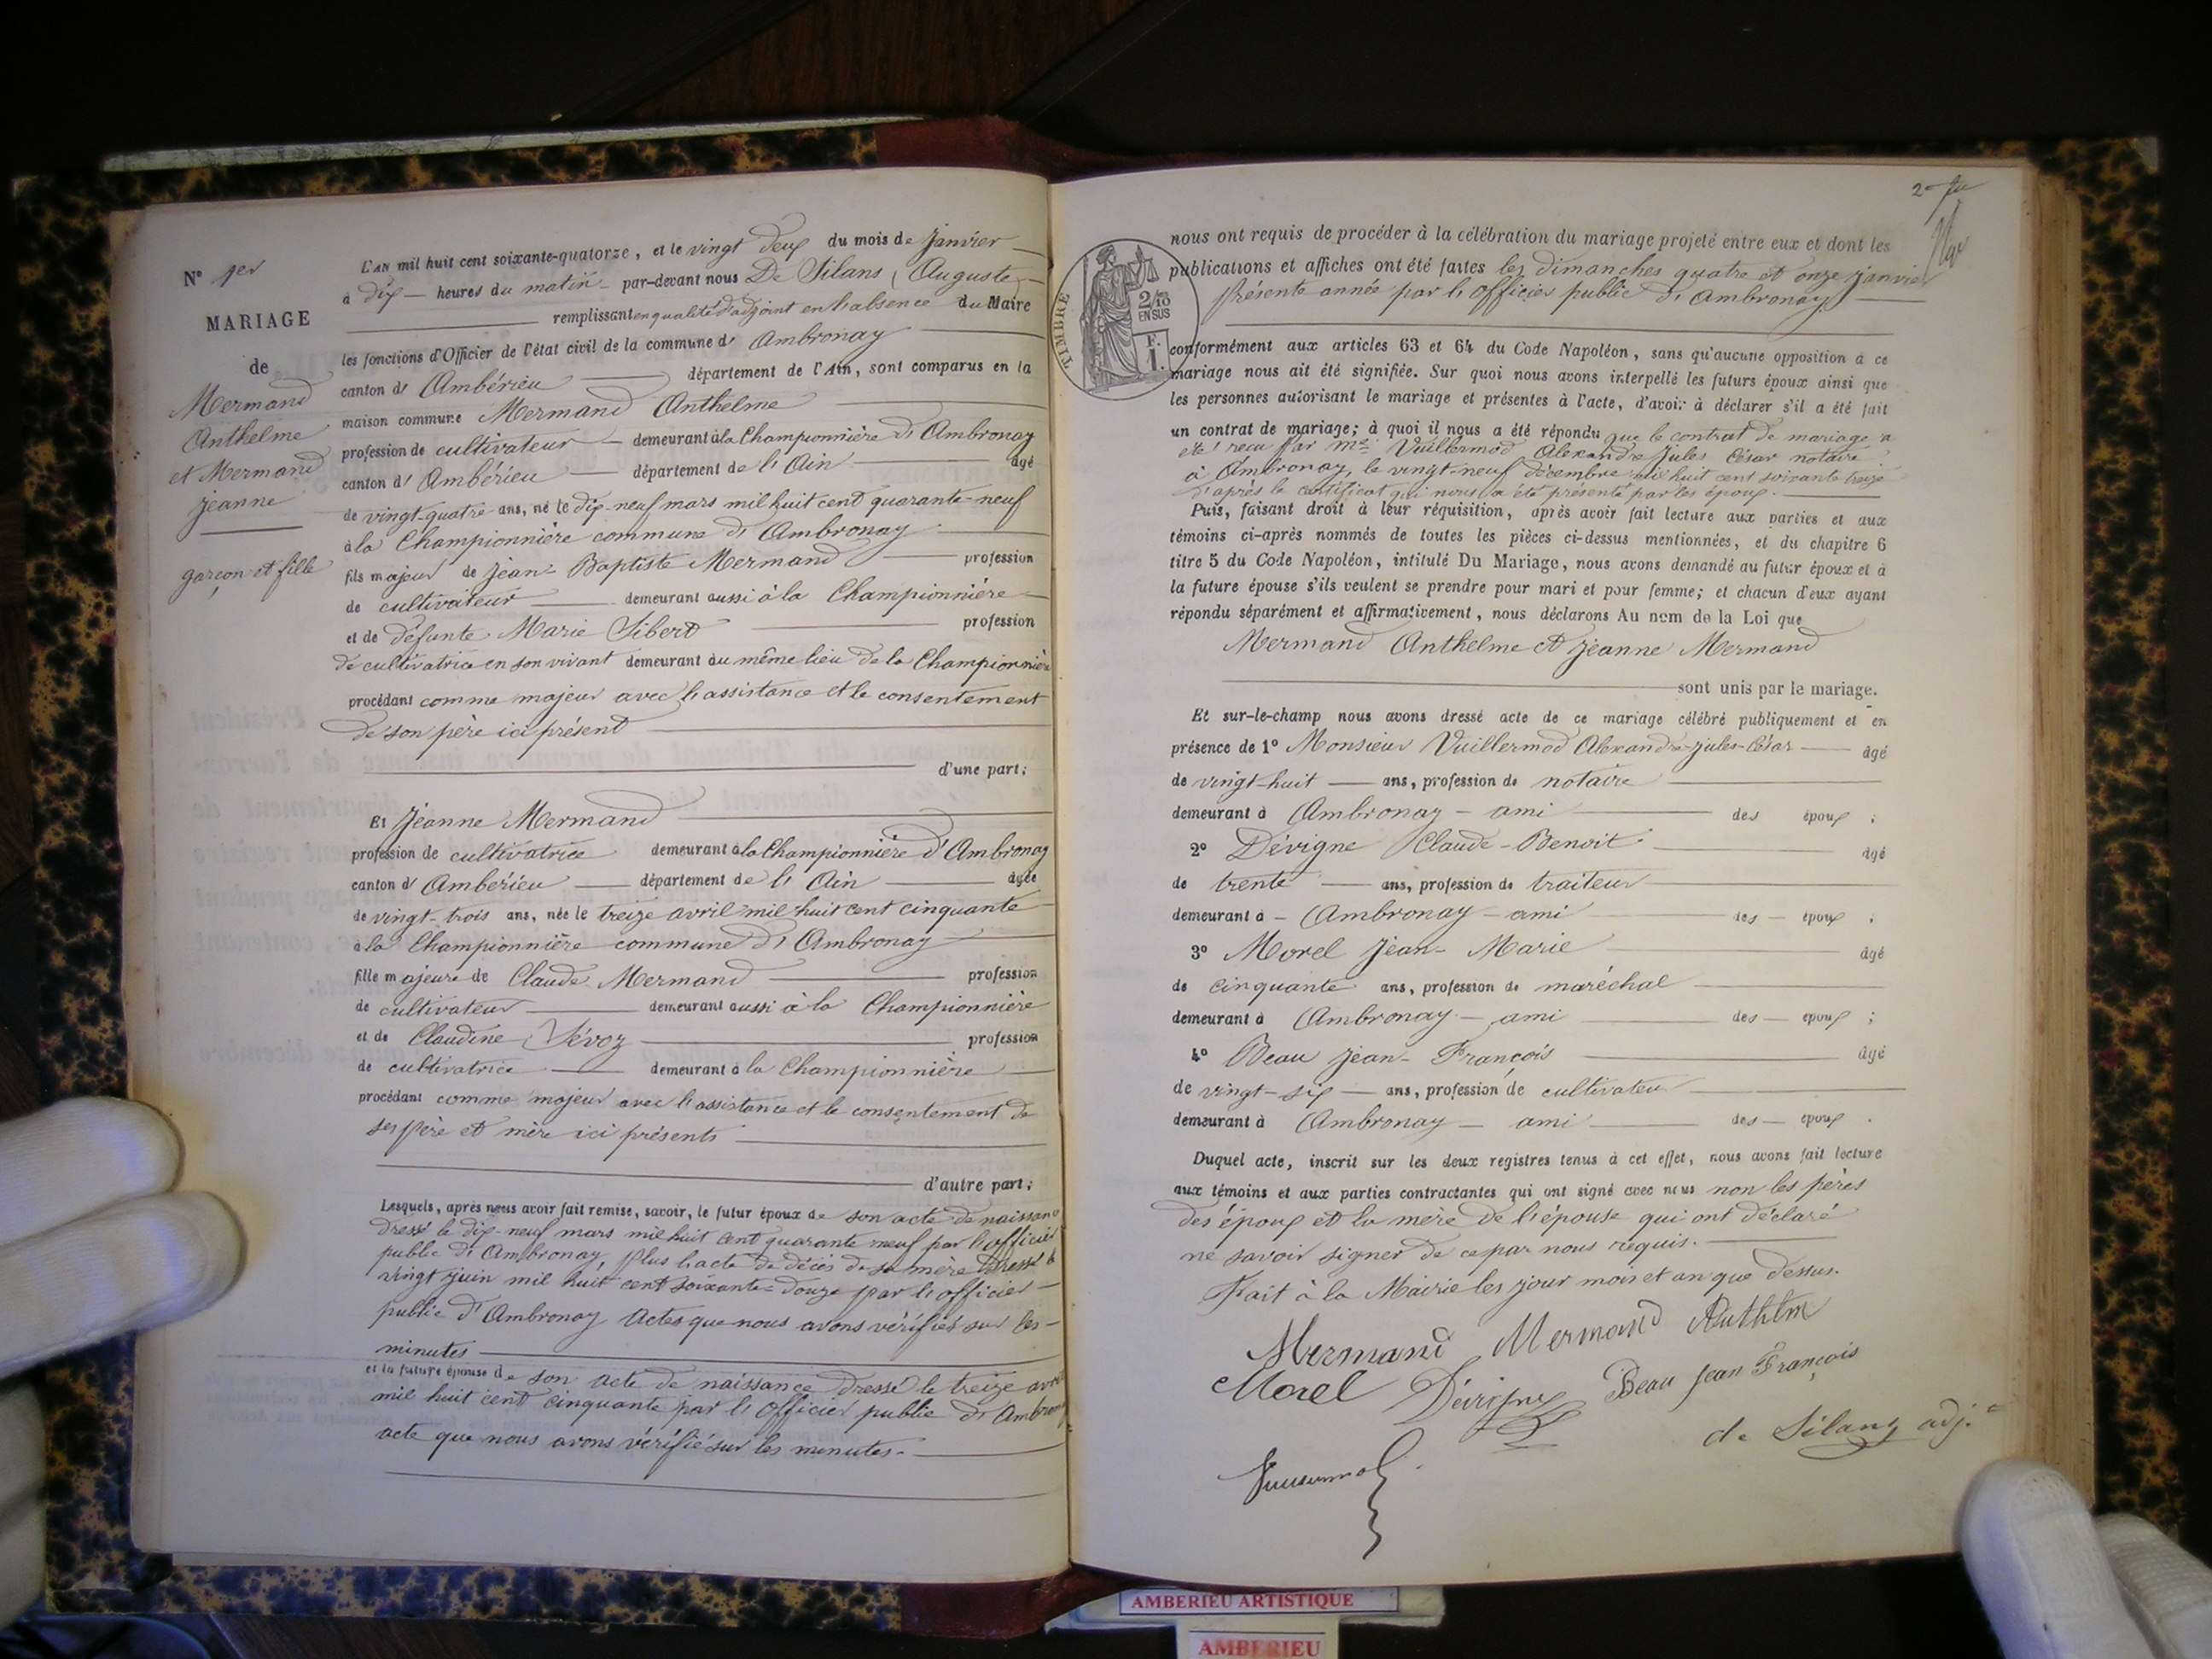 N° 1er
MARIAGE
de
Mermand
Anthelme
et Mermand
Jeanne
garçon et fille
L'AN mil huit cent soixante-quatorze, et le vingt deux du mois de Janvier
à dix heures du matin par-devant nous De Silans (Auguste
remplissant en qualité d'adjoint en l'absence du Maire
les fonctions d'Officier de l'état civil de la commune d' Ambronay
canton d' Ambérieu département de l'Ain, sont comparus en la
maison commune Mermand Anthelme
profession de cultivateur demeurant à la Championnière d' Ambronay
canton d' Ambérieu département de l' Ain âgé
de vingt-quatre ans, né le dix-neuf mars mil huit cent quarante-neuf
à la Championnière commune d' Ambronay
fils majeur de Jean-Baptiste Mermand profession
de cultivateur demeurant aussi à la Championnière
et de défunte Marie Sibert profession
de cultivatrice en son vivant demeurant au même lieu de la Championnière
procédant comme majeur avec l'assistance et le consentement
de son père ici présent
d'une part;
Et Jeanne Mermand
profession de cultivatrice demeurant à la Championnière d' Ambronay
canton d' Ambérieu département de l' Ain âgée
de vingt-trois ans, née le treize avril mil huit cent cinquante
à la Championnière commune d' Ambronay
fille majeure de Claude Mermand profession
de cultivateur demeurant aussi à la Championnière
et de Claudine Sévoz profession
de cultivatrice demeurant à la Championnière
procédant comme majeur avec l'assistance et le consentement de
ses père et mère ici présents
d'autre part;
Lesquels, après nous avoir fait remise, savoir, le futur époux de son acte de naissance
dressé le dix-neuf mars mil huit cent quarante neuf par l'officier
public d' Ambronay, plus l'acte de décès de sa mère dressé le
vingt juin mil huit cent soixante-douze par l'officier
public d' Ambronay Actes que nous avons vérifiés sur les
minutes
et la future épouse de son acte de naissance dressé le treize avril
mil huit cent cinquante par l'officier public d' Ambronay
acte que nous avons vérifié sur les minutes.
nous ont requis de procéder à la célébration du mariage projeté entre eux et dont les
publications et affiches ont été faites les dimanches quatre et onze janvier
présente année par l'officier public d' Ambronay
TIMBRE
2/10
EN SUS
F.
1.
conformément aux articles 63 et 64 du Code Napoléon, sans qu'aucune opposition à ce
mariage nous ait été signifiée. Sur quoi nous avons interpellé les futurs époux ainsi que
les personnes autorisant le mariage et présentes à l'acte, d'avoir à déclarer s'il a été fait
un contrat de mariage; à quoi il nous a été répondu que le contrat de mariage a
été reçu par Me Vuillermod Alexandre Jules César notaire
à Ambronay, le vingt-neuf décembre mil huit cent soixante-treize
d'après le certificat qui nous a été présenté par les époux.
Puis, faisant droit à leur réquisition, après avoir fait lecture aux parties et aux
témoins ci-après nommés de toutes les pièces ci-dessus mentionnées, et du chapitre 6
titre 5 du Code Napoléon, intitulé Du Mariage, nous avons demandé au futur époux et à
la future épouse s'ils veulent se prendre pour mari et pour femme; et chacun d'eux ayant
répondu séparément et affirmativement, nous déclarons Au nom de la Loi que
Mermand Anthelme et Jeanne Mermand
sont unis par le mariage.
Et sur-le-champ nous avons dressé acte de ce mariage célébré publiquement et en
présence de 1° Monsieur Vuillermod Alexandre-Jules-César âgé
de vingt-huit ans, profession de notaire
demeurant à Ambronay - ami des époux ;
2° Dévigne Claude-Benoit âgé
de trente ans, profession de traiteur
demeurant à Ambronay - ami des époux ;
3° Morel Jean-Marie âgé
de cinquante ans, profession de maréchal
demeurant à Ambronay - ami des époux ;
4° Beau Jean-François âgé
de vingt-six ans, profession de cultivateur
demeurant à Ambronay - ami des époux .
Duquel acte, inscrit sur les deux registres tenus à cet effet, nous avons fait lecture
aux témoins et aux parties contractantes qui ont signé avec nous non les pères
des époux et la mère de l'épouse qui ont déclaré
ne savoir signer de ce par nous requis.
Fait à la Mairie les jour mois et an que dessus.
Mermand Mermand Anthelm
Morel Dévigne Beau Jean François
de Silans adj.
AMBERIEU ARTISTIQUE
AMBERIEU